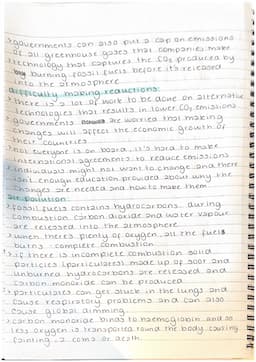 > governments can also put a cap on emissions
of all greenhouse gases that companies make
technology that captures the CO₂ produced by
burning fossil fuels before it's released
into the atmosphere
difficulty making reductions:
there is a lot of work to be done on alternative
technologies that results in lower CO₂ emissions
governments are worried that making
changes will affect the economic growth of
their countries
not everyone is on board, it's hard to make
international agreements to reduce emissions
individuals might not want to change and there
isn't enough education provided about why the
changes are needed and how to make them
air pollution:
> fossil fuels contains hydrocarbons. during
combustion carbon dioxide and water vapour
are released into the atmosphere
> when there's plenty of oxygen, all the fuels
burns - complete combustion
> if there is incomplete combustion solid
particles (particulates) made up of soot and
unburned hydrocarbons are released and
carbon monoxide can be produced
> particulates can get stuck in the lungs and
cause respiratory problems and can also
cause global dimming
> carbon monoxide binds to haemoglobin and so
less oxygen is transported round the body, causing
fainting, a coma or death